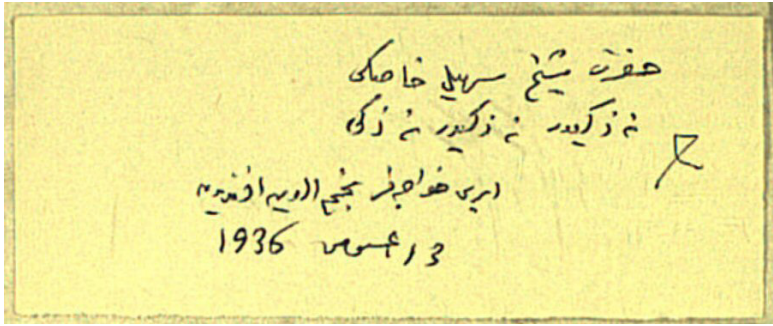 حضرت شيخ سهيل خاصكى
نه ذكيدر نه ذكيدر نه ذكى
خواجه‌مز نجم الدين افنديدن
13 اغستوس 1936